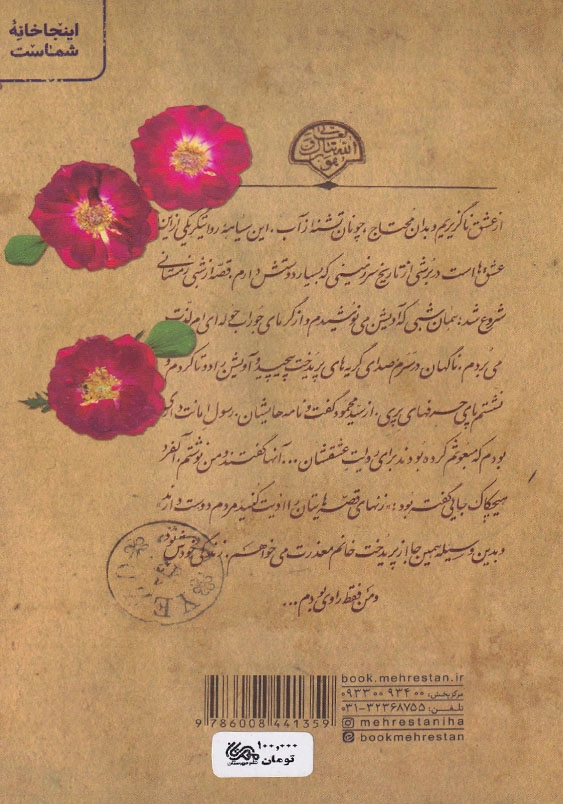 اینجا خانهٔ
شماست
از عشق ناگزیریم و بدان محتاج، چونان تشنه از آب. این سیاههٔ روایتگر یکی از این
عشق‌ها است در برشی از تاریخ سرزمینی که بسیار دوستش دارم. قصه از شبی زمستانی
شروع شد؛ همان شبی که آویشن می‌نوشیدم و از گرمای جوراب حوله‌ای‌ام لذت
می‌بردم. ناگهان در سرم صدای گریه‌های پریدخت پیچید و آویشن را دو تا کردم و
نشستم پای حرفهای پری. از سید محمود گفت و نامه‌هایشان. رسول امانت‌داری
بودم که مبعوثم کرده بودند برای روایت عشقشان... آنها گفتند و من نوشتم. آلفرد
هیچکاک جایی گفته بود: «زنهای قصه‌هایتان را اذیت کنید مردم دوست دارند»
و بدین وسیله همین جا از پریدخت خانم معذرت می‌خواهم. زندگی خودش بود،
و من فقط راوی بودم...
book.mehrestan.ir
مرکز پخش: ۰۹۳۳۰۰۹۳۴۰۰
تلفن: ۰۳۱-۳۲۳۶۸۷۵۵
mehrestaniha
bookmehrestan
9 786008 441359
۱۰۰,۰۰۰
تومان